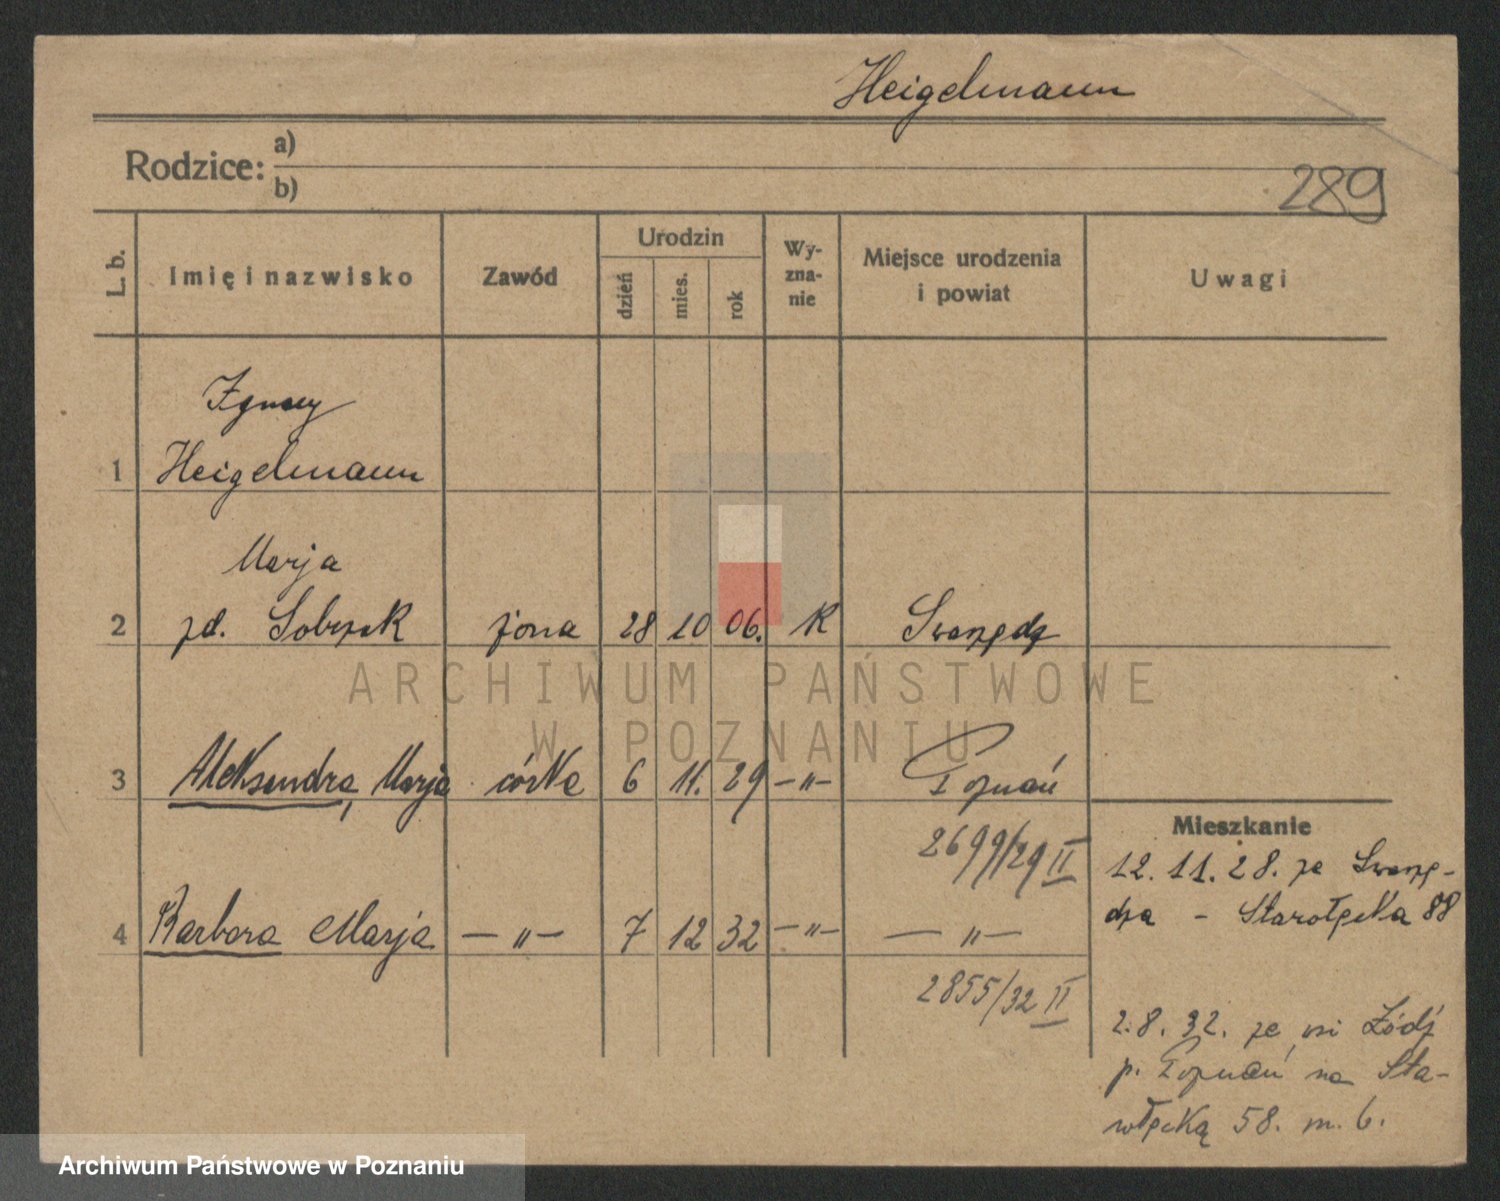 Heigelmann
Rodzice: a)
b)
289
L. b.
Imię i nazwisko
Zawód
Urodzin
dzień
mies.
rok
Wy-
zna-
nie
Miejsce urodzenia
i powiat
Uwagi
Ignacy
1 Heigelmann
Marja
2 zd. Sobczak żona 28 10 06. K Swarzędz
ARCHIWUM PAŃSTWOWE
W POZNANIU
3 Aleksandra, Marja córka 6 11. 29 -"- Poznań
2699/29 II
Mieszkanie
12. 11. 28. ze Swarzę-
dza - Starołęcka 88
4 Barbara Marja -"- 7 12 32 -"- -"-
2855/32 II
2. 8. 32. ze wsi Łódź
p. Poznań na Sta-
rołęcką 58. m. 6.
Archiwum Państwowe w Poznaniu